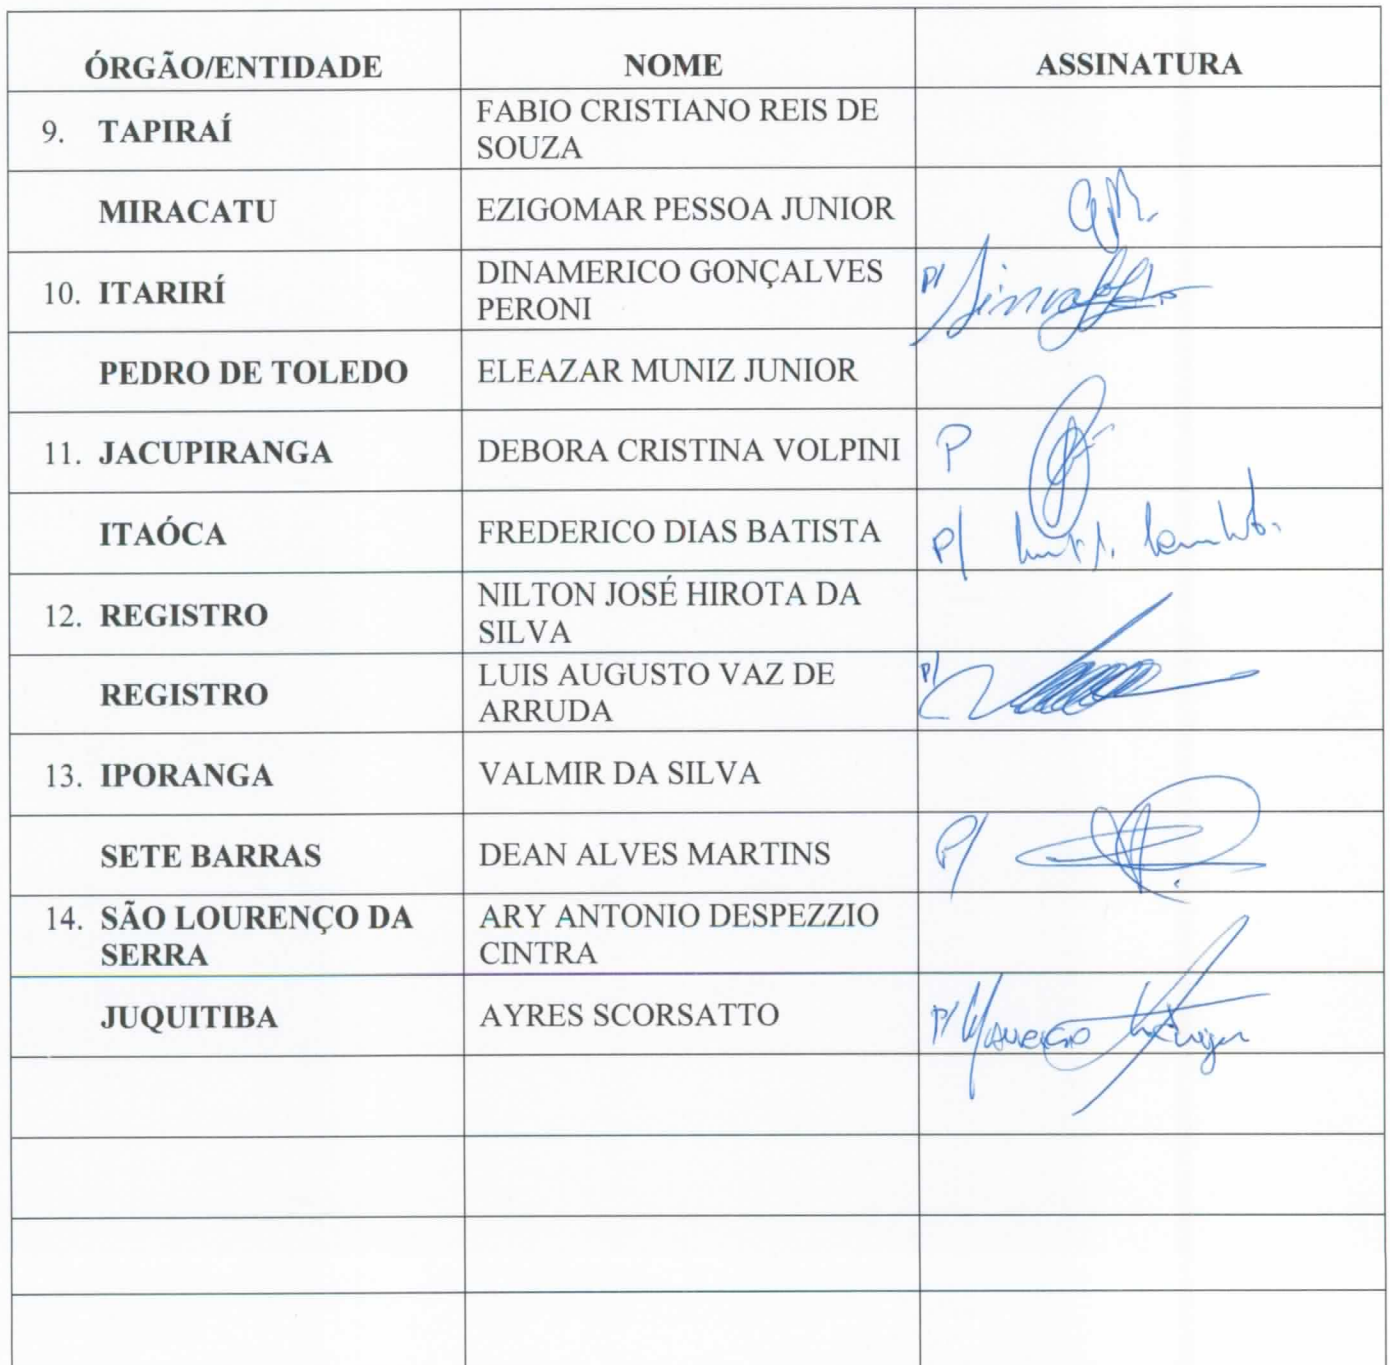 ÓRGÃO/ENTIDADE NOME ASSINATURA
9. TAPIRAÍ FABIO CRISTIANO REIS DE
SOUZA
MIRACATU EZIGOMAR PESSOA JUNIOR
10. ITARIRÍ DINAMERICO GONÇALVES
PERONI P/
PEDRO DE TOLEDO ELEAZAR MUNIZ JUNIOR
11. JACUPIRANGA DEBORA CRISTINA VOLPINI P
ITAÓCA FREDERICO DIAS BATISTA P/
12. REGISTRO NILTON JOSÉ HIROTA DA
SILVA
REGISTRO LUIS AUGUSTO VAZ DE
ARRUDA P/
13. IPORANGA VALMIR DA SILVA
SETE BARRAS DEAN ALVES MARTINS P/
14. SÃO LOURENÇO DA
SERRA ARY ANTONIO DESPEZZIO
CINTRA
JUQUITIBA AYRES SCORSATTO P/